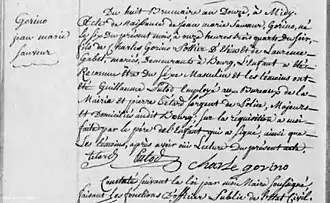 Gorino
jean marie
Sauveur
Du huit Brumaire an Douze, à Midy,
Acte de naissance de jean marie Sauveur, Gorino, né
le six du présent mois, à onze heures trois quarts du soir,
fils de Charles Gorino et de Laurence
Gabet, mariés, Demeurants à Bourg. L'Enfant a été
Reconnu être du Sexe Masculin et les témoins ont
été Guillaume Employé au Bureau de
la Mairie et pierre Sergent de Police, Majeurs
et Domiciliés audit Bourg. Sur la réquisition à moi
faite par le père de l'Enfant qui a signé, ainsi que
les témoins, après avoir eu Lecture du présent acte
Charle gorino
Constaté suivant la loi par moi Maire Soussigné
faisant les fonctions d'officier Public de l'état Civil.